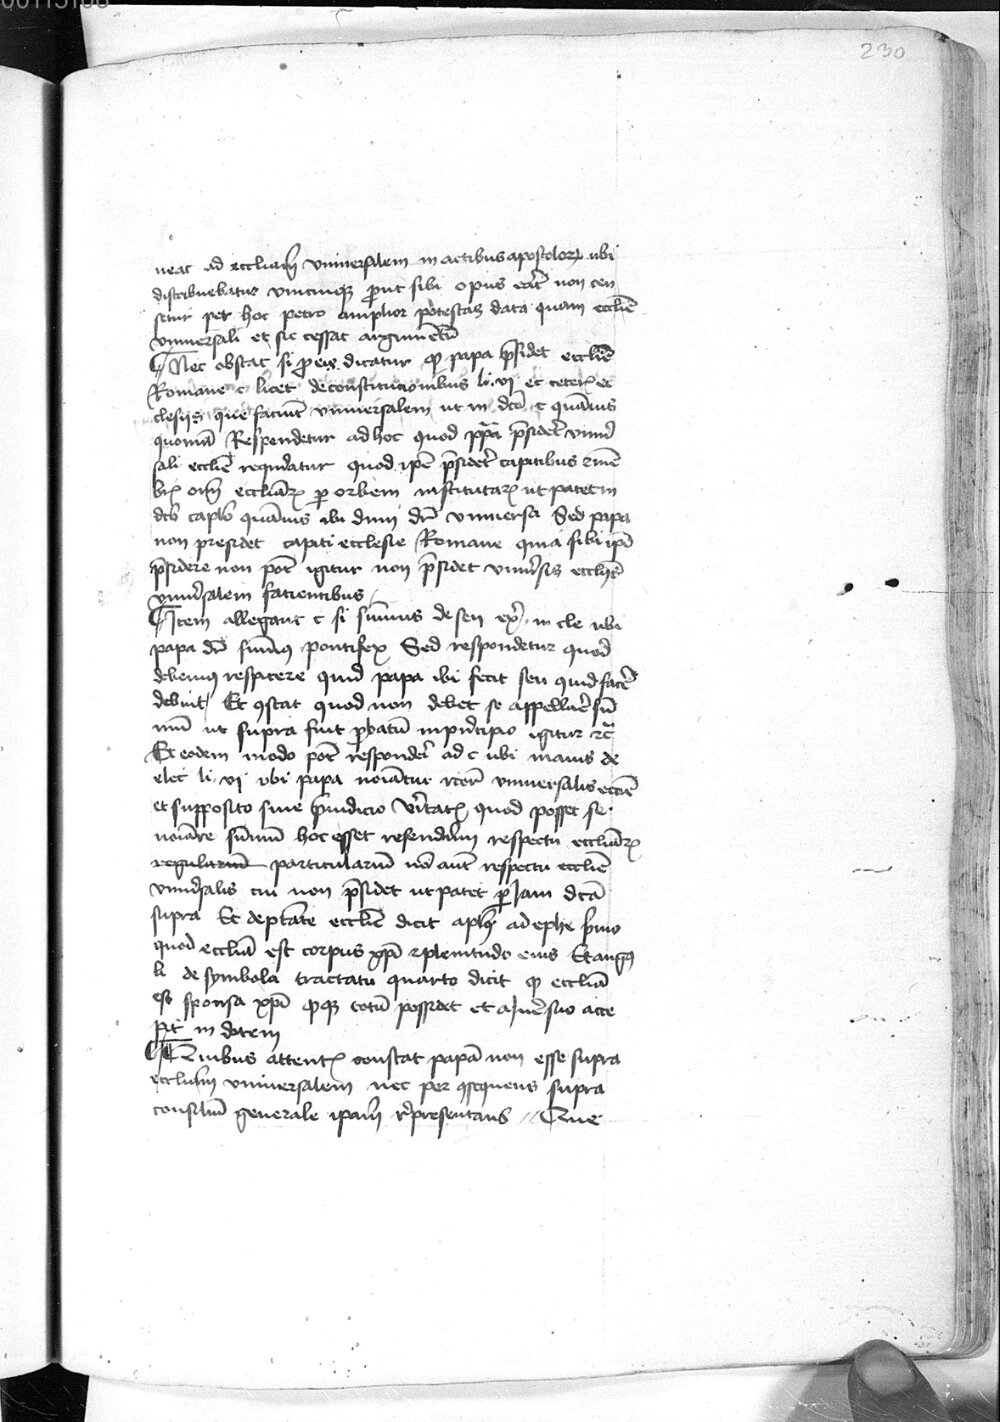 230
ueat ad eccliam vniuersalem in actibus apostolorꝝ ubi
distribuebatur vnicuiqꝫ prout sibi opus erat non cen
setur per hoc petro amplior potestas data quam ecclie
vniuersali et sic cessat argumentū
Nec obstat si dicatur ꝙ papa p̄sidet ecclie
Romane c licet de constitucionibus li. vi et ceteris ec
clesijs que faciūt vniuersalem ut in dc̄o c quāuis
quoniā Respondetur ad hoc quod papa p̄sideret vniuer
sali ecclie requiratur quod ip̄e p̄sideret capitibus
oīm eccliaꝝ per orbem institutaꝝ ut patet in
dco caplo quāuis ubi dum dr̄ vniuersa Sed papa
non presidet capiti ecclesie Romane quia sibi ip̄i
p̄sidere non pot̄ igitur non p̄sidet vniuersis ecclijs
vniuersalem facientibus
Item allegant c si summus de sen ex̄. in cle ubi
papa dr̄ summus pontifex Sed respondetur quod
debemus respicere quid papa ibi fecit seu quid facere
debuit Et ꝯstat quod non debet se appellare sū
mū ut supra fuit probatū in principio igitur ⁊c̄
Et eodem modo pot̄ responderi ad c ubi maius de
elec li. vi ubi papa noīatur rector vniuersalis ecclie
et supposito sine p̄iudicio veritatis quod posset se
noīare summū hoc esset referendum respectu eccliaꝝ
regularium particulariū nō aut̄ respectu ecclie
vniuersalis cui non p̄sidet ut patet per iam dc̄a
supra Et de ptāte ecclie dicit apl̄us ad ephe primo
quod ecclia est corpus xp̄i ⁊ plenitudo eius Et augꝰ
li de symbolo tractatu quarto dicit ꝙ ecclia
est sponsa xp̄i totū possidet et a suo acce
pit in dotem
Quibus attentis constat papā non esse supra
eccliam vniuersalem nec per ꝯsequens supra
consiliū generale ipam representans // Que